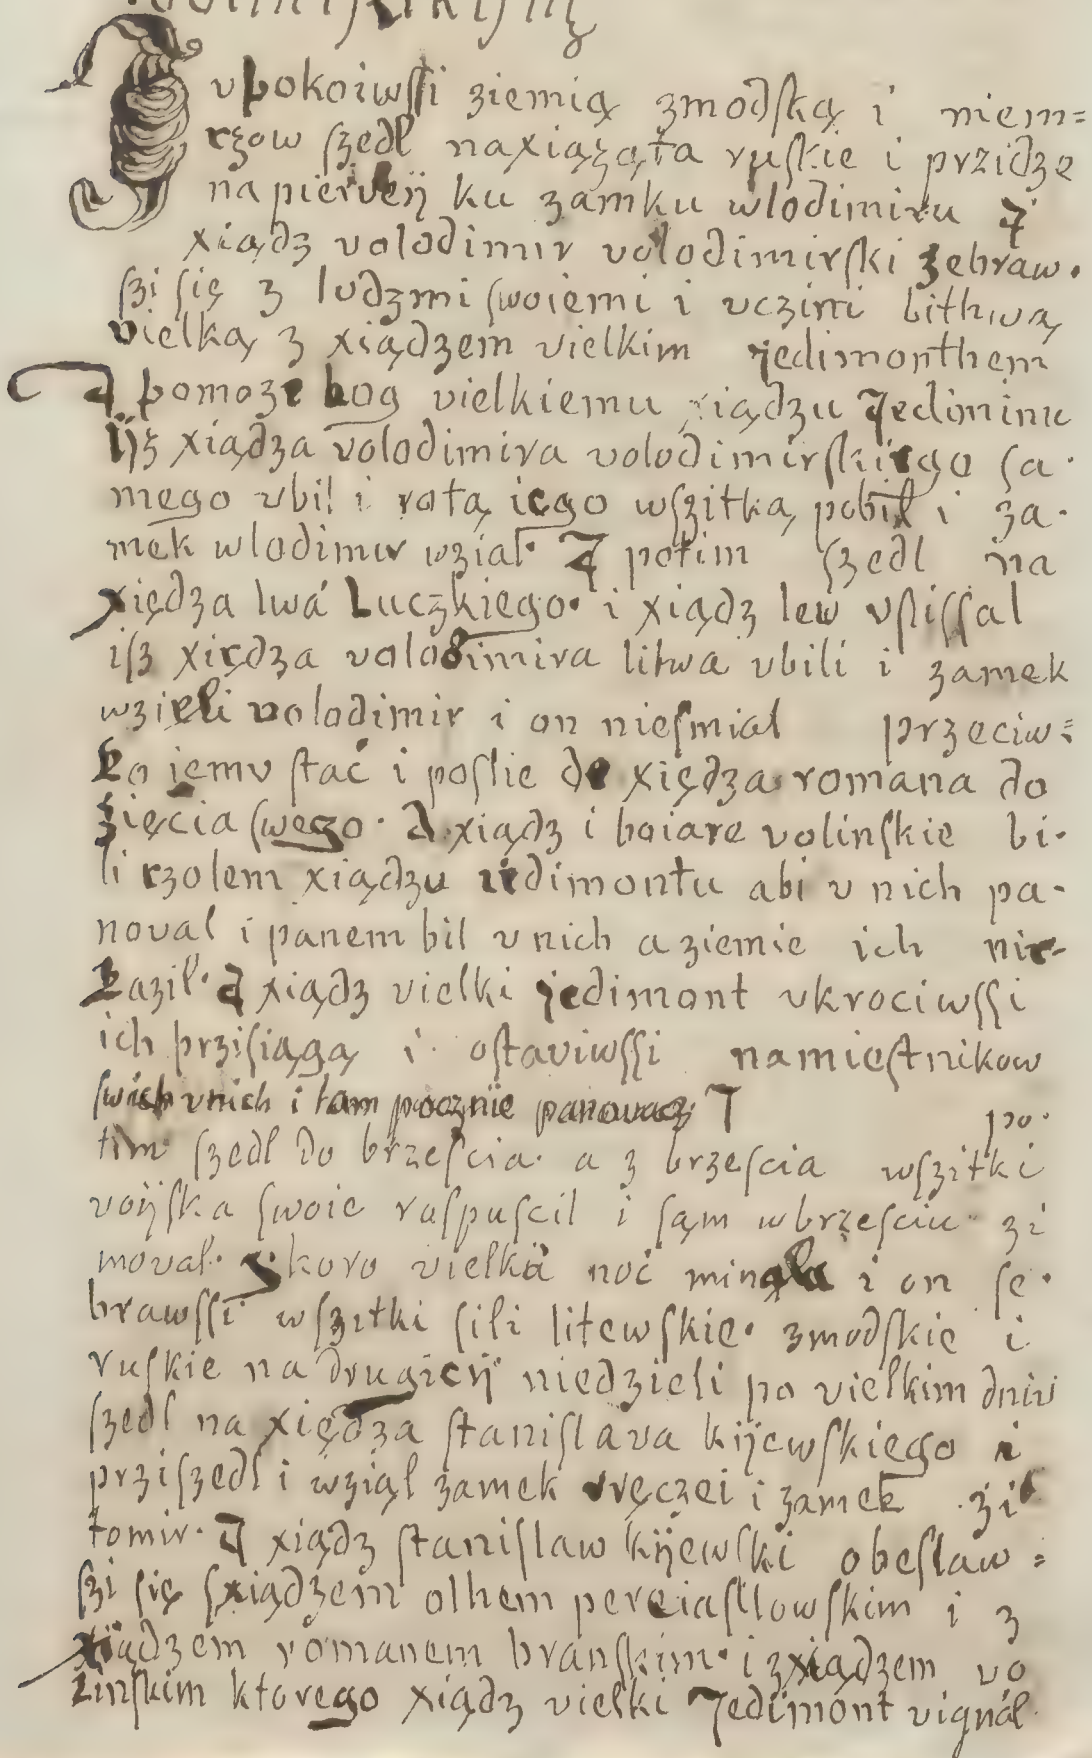 vpokoiwssi ziemią zmodską i niem=
czow szedl naxiążąta ruskie i przidze
napierveÿ ku zamku wlodimiru I
xiądz volodimir volodimirski zebraw.
szi się z ludzmi swoiemi i vczini bithwą
vielką z xiądzem vielkim jedimonthem
I pomoze bog vielkiemu xiądzu Jediminu
Iÿz xiądza volodimira volodimirskiego sa.
mego vbil i rotą iego wszitką pobil i za.
mek wlodimir wzial. I potim szedl na
xiędza lwá Luczkiego. i xiądz lew vslissal
isz xiędza volodimira litwa vbili i zamek
wzięli volodimir i on niesmial przeciw=
ko iemu stać i poslie do xiędza romana do
zięcia swego. A xiądz i boiare volinskie bi.
li czolem xiądzu iedimontu abi v nich pa.
noval i panem bil v nich a ziemie ich nie-
kazil. I xiądz vielki jedimont vkrociwssi
ich przisiągą i ostaviwssi namiestnikow
swich vnich i tam pocznie panovacz I po.
tim szedl do brzescia. a z brzescia wszitki
voÿska swoie ruspuscil i sąm wbrzesciu zi
moval. Skoro vielka noć minęła i on se.
brawssi wszitki sili litewskie. zmodskie i
ruskie na drugieÿ niedzieli po vielkim dniu
szedl na xiędza stanislava kijewskiego i
prziszedl i wziąl zamek vręczei i zamek zi
tomir. I xiądz stanislaw kijewski obeslaw=
szi się sxiądzem olhem pereiasllowskim i z
xiądzem romanem branskim. i zxiądzem vo
linskim ktorego xiądz vielki Jedimont vignál